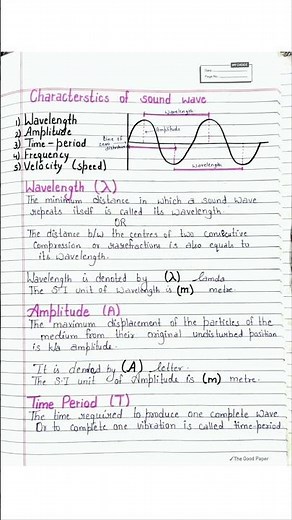 Characterstics of sound wave
1) Wavelength
2) Amplitude
3) Time-period
4) Frequency
5) Velocity (speed)
wavelength
Amplitude
line of
zero
wavelength
Wavelength (λ)
The minimum distance in which a sound wave
repeats itself is called its wavelength.
OR
The distance b/w the centres of two consecutive
compression or rarefractions is also equals to
its wavelength.
Wavelength is denoted by (λ) lamda
The S'I unit of wavelength is (m) metre.
Amplitude (A)
The maximum displacement of the particles of the
medium from their original undisturbed position
is k/a amplitude.
It is denoted by (A) letter.
The S.I unit of Amplitude is (m) metre.
Time Period (T)
The time required to produce one complete wave
Or to complete one vibration is called time-period
The Good Paper